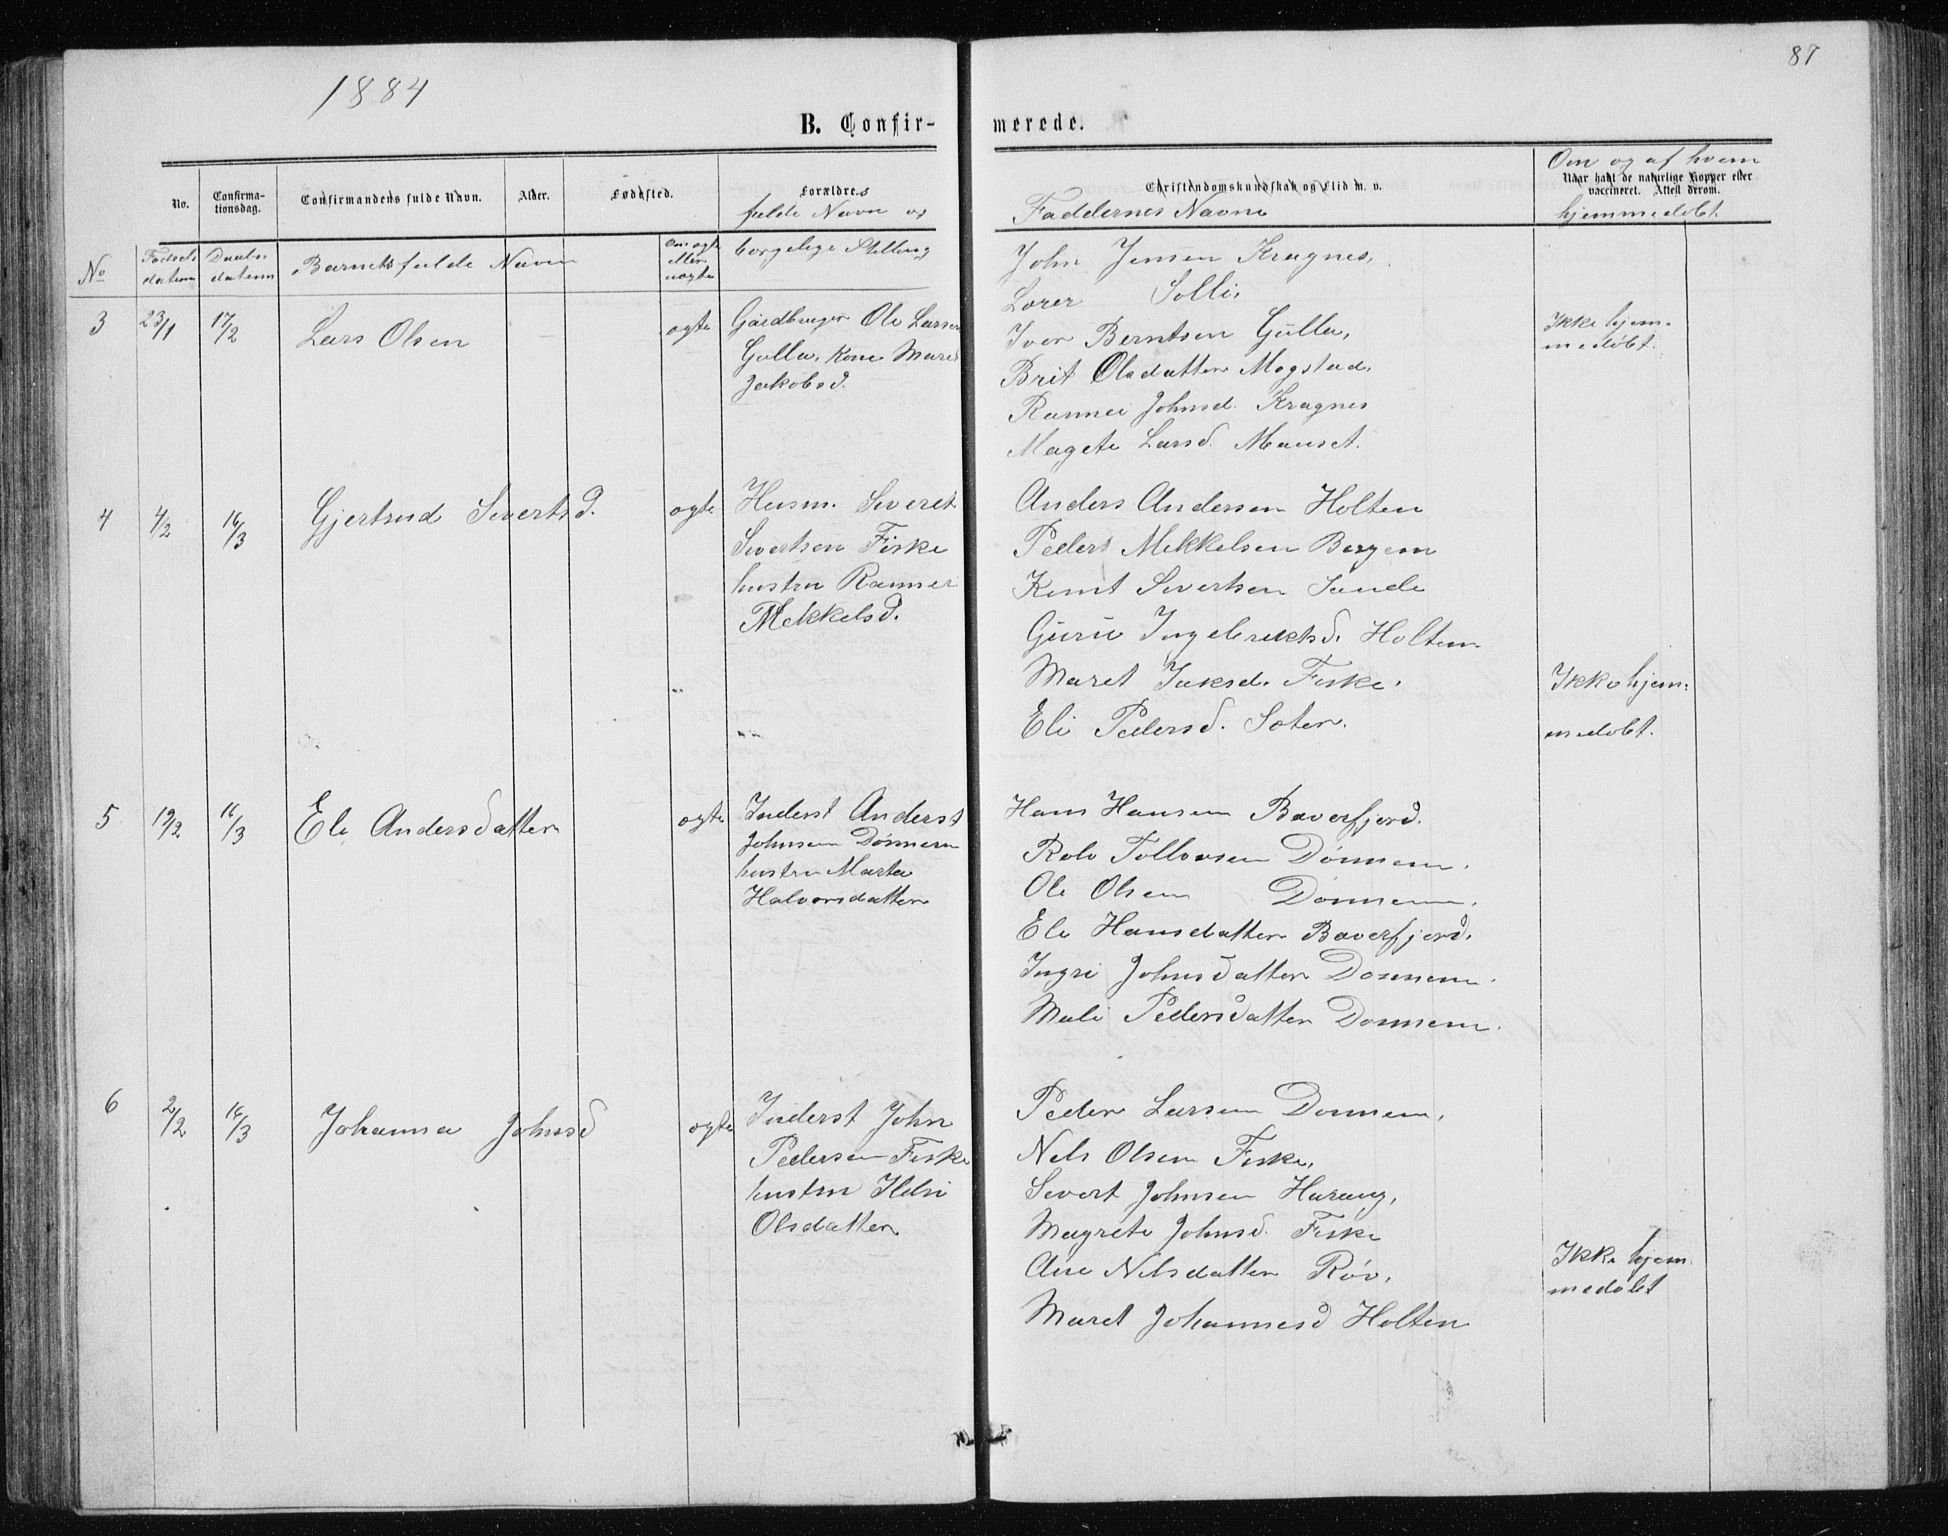 1884
87
B. Confir-
merede.
No.
Confirma-
tionsdag.
Confirmandens fulde Navn.
Alder.
Fødested.
Forældres
fulde Navn og
borgelige Stilling
Christendomskundskab og Flid m. v.
Faddernes Navne
Om og af hvem
Naar havt de naturlige Kopper eller
vaccineret. Attest derom.
hjemmedøbt
No
Fødsels
datum
Daabs
datum
Barnets fulde Navn
Om ægte
eller
uægte
John Jensen Kragnes,
Lærer Solli,
3 23/1 17/2 Lars Olsen ægte Gårdbruger Ole Larsen
Gulla, Kone Maret
Jakobsd.
Iver Berntsen Gulla,
Brit Olsdatter Mogstad,
Rannei Johnsd. Kragnes
Magete Larsd. Mauset.
Ikke hjem-
medøbt.
4 4/2 16/3 Gjertrud Sivertsd. ægte Husm. Siveret
Sivertsen Fiske
hustru Rannei
Mekkelsd.
Anders Andersen Holten
Peder Mekkelsen Bergem
Knut Sivertsen Sande
Guru Ingebrektsd. Holten
Maret Isaksd. Fiske.
Eli Pedersd. Sæter.
Ikke hjem-
medøbt.
5 19/2 16/3 Eli Andersdatter ægte Inderst Anders
Johnsen Dønnem
hustru Marta
Halvorsdatter
Hans Hansen Bæverfjord.
Rolv Tollovsen Dønnem.
Ole Olsen Dønnem.
Eli Hansdatter Bæverfjord.
Ingri Johnsdatter Dønnem.
Mali Pedersdatter Dønnem.
6 2/2 16/3 Johanna Johnsd ægte Inderst John
Pedersen Fiske
hustru Ildri
Olsdatter
Peder Larsen Dønnem,
Nels Olsen Fiske,
Sivert Johnsen Harang,
Magrete Johnsd. Fiske
Ane Nilsdatter Røv,
Maret Johannesd Holten
Ikke hjem
medøbt